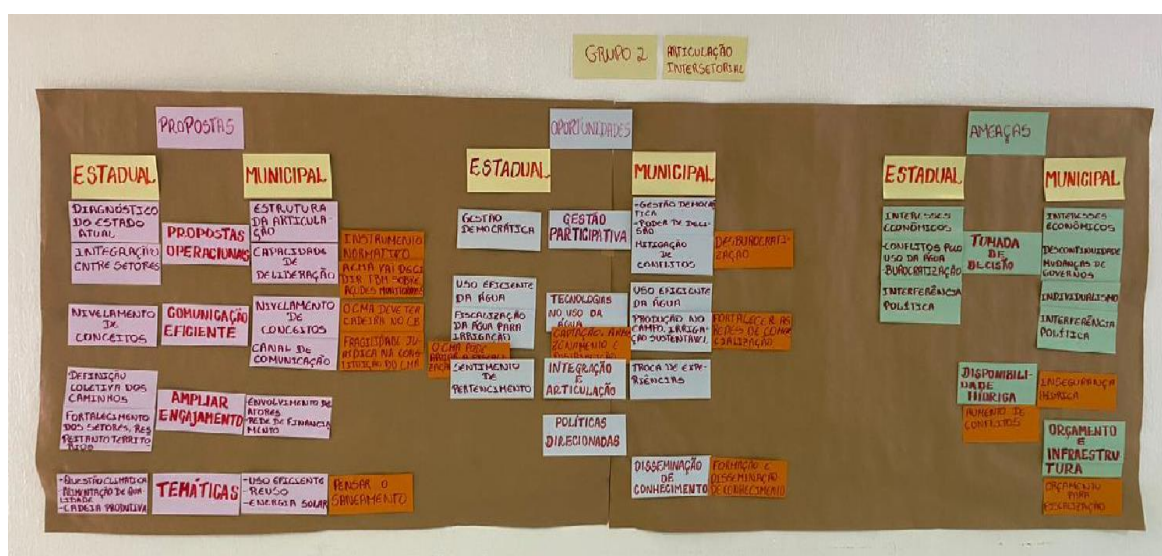 GRUPO 2
ARTICULAÇÃO
INTERSETORIAL
PROPOSTAS
ESTADUAL
MUNICIPAL
DIAGNÓSTICO
DO ESTADO
ATUAL
INTEGRAÇÃO
ENTRE SETORES
PROPOSTAS
OPERACIONAIS
ESTRUTURA
DA ARTICULA-
ÇÃO
CAPACIDADE
DE
DELIBERAÇÃO
INSTRUMENTO
NORMATIVO
DIR TBM SOBRE
NIVELAMENTO
DE
CONCEITOS
COMUNICAÇÃO
EFICIENTE
NIVELAMENTO
DE
CONCEITOS
CANAL DE
COMUNICAÇÃO
OCMA DEVE TER
CADEIRA NO CB
FRAGILIDADE JU-
RÍDICA NA CONS-
TITUIÇÃO DO CMA
DEFINIÇÃO
COLETIVA DOS
CAMINHOS
FORTALECIMENTO
DOS SETORES, RES
PEITANTO TERRITÓ
RIOS
AMPLIAR
ENGAJAMENTO
ENVOLVIMENTO DE
ATORES
-REDE DE FINANCIA
MENTO
-QUESTÃO CLIMÁTICA
-ALIMENTAÇÃO DE QUA
LIDADE
-CADEIA PRODUTIVA
TEMÁTICAS
-USO EFICIENTE
-REUSO
-ENERGIA SOLAR
PENSAR O
SANEAMENTO
OPORTUNIDADES
ESTADUAL
MUNICIPAL
GESTÃO
DEMOCRÁTICA
GESTÃO
PARTICIPATIVA
-GESTÃO DEMOCRÁ
TICA
-PODER DE DECI-
SÃO
MITIGAÇÃO
DE
CONFLITOS
DESBUROCRATI-
ZAÇÃO
USO EFICIENTE
DA ÁGUA
FISCALIZAÇÃO
DA ÁGUA PARA
IRRIGAÇÃO
OCMA PODE
SENTIMENTO
DE
PERTENCIMENTO
TECNOLOGIAS
NO USO DA
ÁGUA
INTEGRAÇÃO
E
ARTICULAÇÃO
POLÍTICAS
DIRECIONADAS
USO EFICIENTE
DA ÁGUA
PRODUÇÃO NO
CAMPO, IRRIGA-
ÇÃO SUSTENTÁVEL
FORTALECER AS
REDES DE COMER
CIALIZAÇÃO
TROCA DE EXPE-
RIÊNCIAS
DISSEMINAÇÃO
DE
CONHECIMENTO
FORMAÇÃO E
DISSEMINAÇÃO
DE CONHECIMENTO
AMEAÇAS
ESTADUAL
MUNICIPAL
INTERESSES
ECONÔMICOS
-CONFLITOS PELO
USO DA ÁGUA
-BUROCRATIZAÇÃO
INTERFERÊNCIA
POLÍTICA
TOMADA
DE
DECISÃO
INTERESSES
ECONÔMICOS
DESCONTINUIDADE
MUDANÇAS DE
GOVERNOS
INDIVIDUALISMO
INTERFERÊNCIA
POLÍTICA
DISPONIBILI-
DADE
HÍDRICA
INSEGURANÇA
HÍDRICA
AUMENTO DE
CONFLITOS
ORÇAMENTO
E
INFRAESTRU
TURA
ORÇAMENTO
PARA
FISCALIZAÇÃO